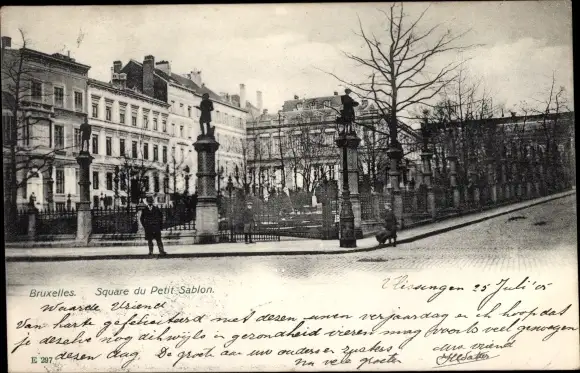 Bruxelles. Square du Petit Sablon.
Vlissingen 25 Juli '05
Waarde Vriend
Van harte gefeliciteerd met dezen uwen verjaardag en ik hoop dat
je dezelve nog dikwijls in gezondheid vieren mag voorts veel genoegen
dezen dag. De groeten aan uw ouders en zusters uw vriend
na vele groeten
E 297